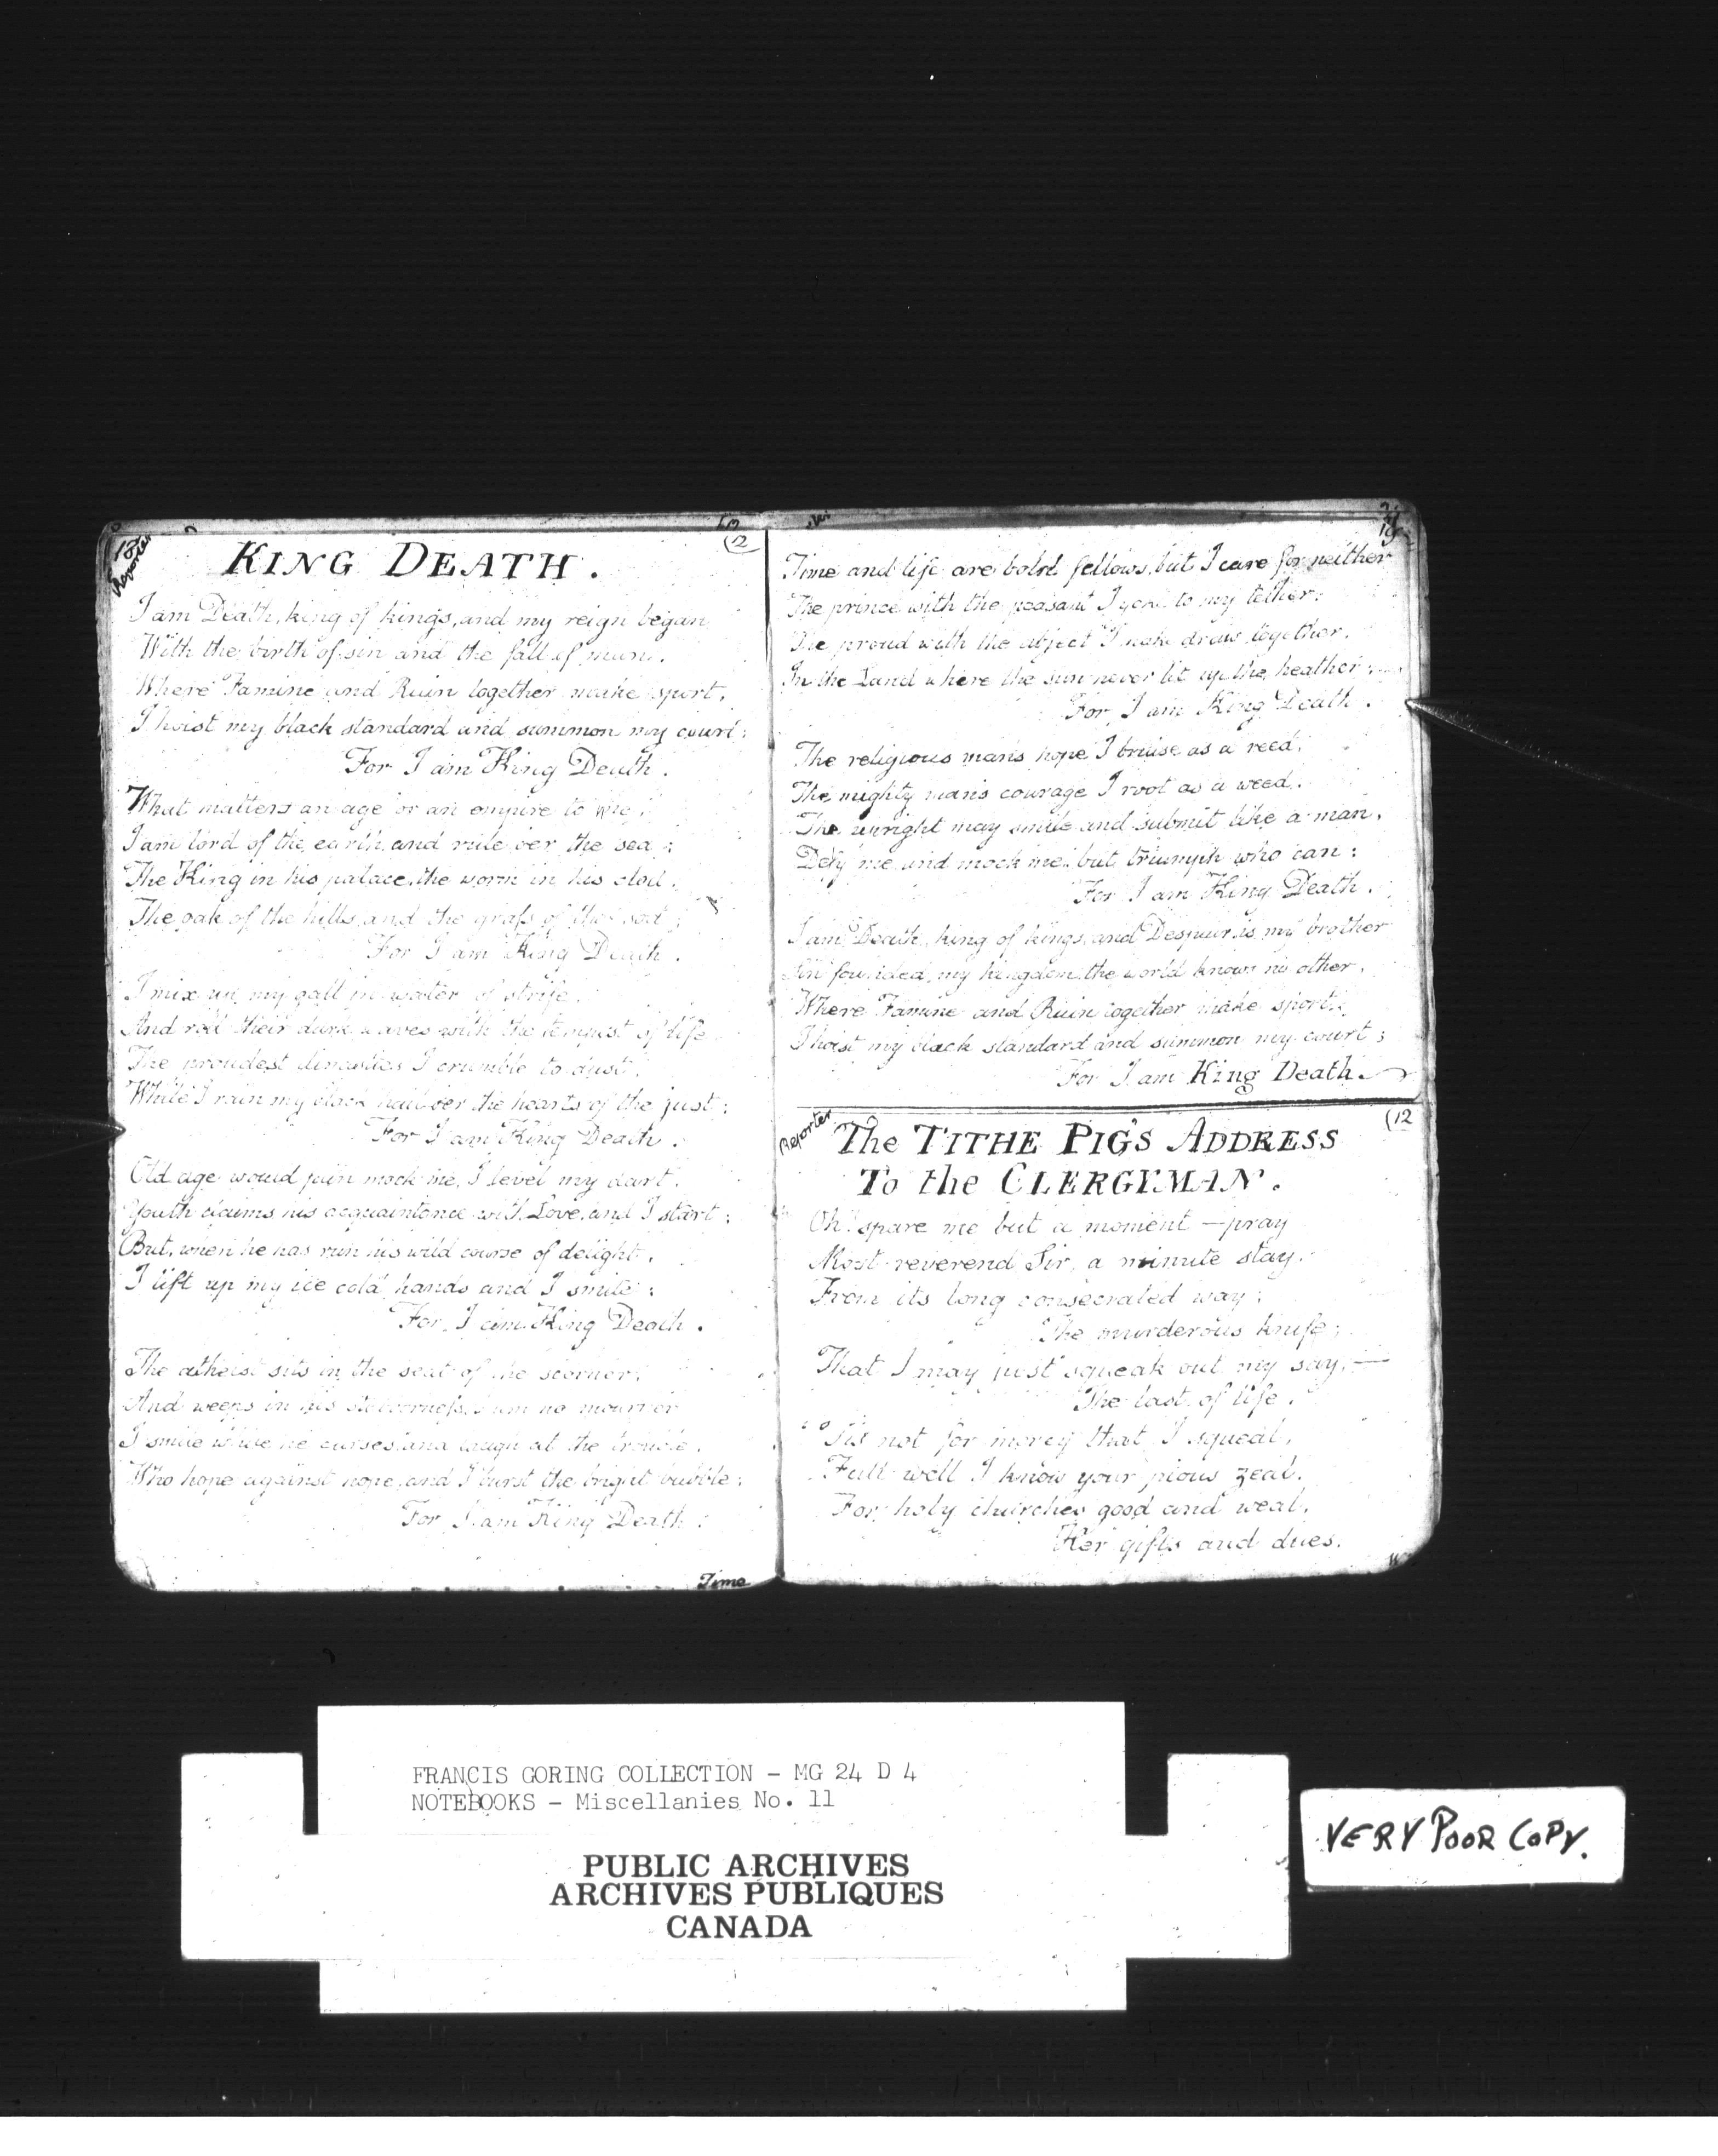 18
Reporter
(12
KING DEATH.
I am Death, king of kings, and my reign began
With the birth of sin and the fall of man.
Where Famine and Ruin together make sport,
I hoist my black standard and summon my court;
For I am King Death.
What matters an age or an empire to me,
I am lord of the earth and rule o'er the sea;
The King in his palace, the worm in his clod,
The oak of the hills, and the grass of the sod;
For I am King Death.
I mix up my gall in water of strife,
And roll their dark waves with the tempest of life
The proudest dinasties I crumble to dust,
While I rain my black hail o'er the hearts of the just;
For I am King Death.
Old age would fain mock me, I level my dart,
Youth claims his acquaintance with Love, and I start;
But, when he has run his wild course of delight,
I lift up my ice cold hands and I smile;
For, I am King Death.
The atheist sits in the seat of the scorner,
And weeps in his I am no mourner
I smile while he curses, and laugh at the trouble,
Who hope against hope, and I burst the bright bubble;
For I am King Death.
Time
19
Time and life are bold fellows, but I care for neither
The prince with the peasant I yoke to my tether;
The proud with the abject I make draw together,
In the Land where the sun never lit up the heather;
For, I am King Death.
The religious man's hope I bruise as a reed,
The mighty man's courage I root as a weed,
The upright may smile and submit like a man,
Defy me, and mock me, but triumph who can;
For I am King Death.
I am Death, king of kings, and Despair is my brother
Sin founded my kingdom, the world knows no other,
Where Famine and Ruin together make sport,
I hoist my black standard and summon my court;
For I am King Death.
Reporter
(12
The TITHE PIG'S ADDRESS
To the CLERGYMAN.
Oh! spare me but a moment — pray
Most reverend Sir, a minute stay,
From its long consecrated way;
The murderous knife;
That I may just squeak out my say, —
The last of life.
'Tis not for mercy that I squeal,
Full well I know your pious zeal,
For holy churches good and weal,
Her gifts and dues.
FRANCIS GORING COLLECTION - MG 24 D 4
NOTEBOOKS - Miscellanies No. 11
PUBLIC ARCHIVES
ARCHIVES PUBLIQUES
CANADA
VERY POOR COPY.